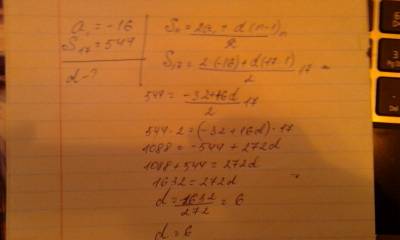 a₁ = -16
S₁₇ = 544
d - ?
Sₙ = (2a₁ + d(n-1))/2 n
S₁₇ = (2·(-16) + d(17-1))/2 17 =
544 = (-32+16d)/2 17
544·2 = (-32 + 16d)·17
1088 = -544 + 272d
1088 + 544 = 272d
1632 = 272d
d = 1632/272 = 6
d = 6